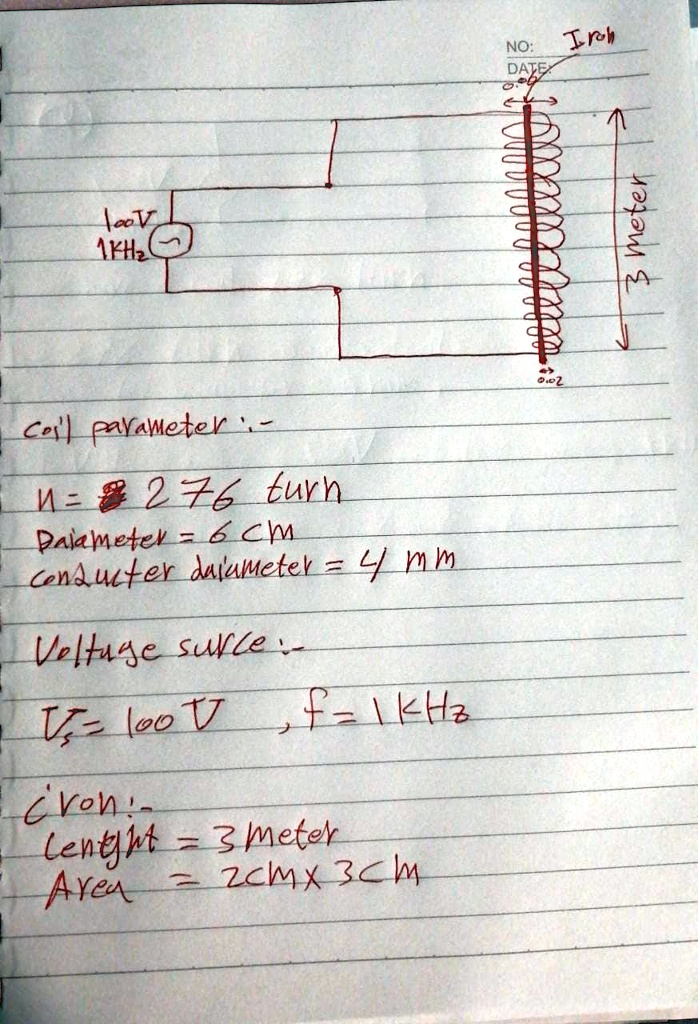 Iron
NO:
DATE:
0.06
100V
1KHz
3 meter
0.02
Coil parameter :-
n = 276 turn
Daiameter = 6 cm
conducter daiameter = 4 mm
Voltage surce :-
Vs = 100 V , f = 1 KHz
iron :-
Lenght = 3 meter
Area = 2cm x 3cm